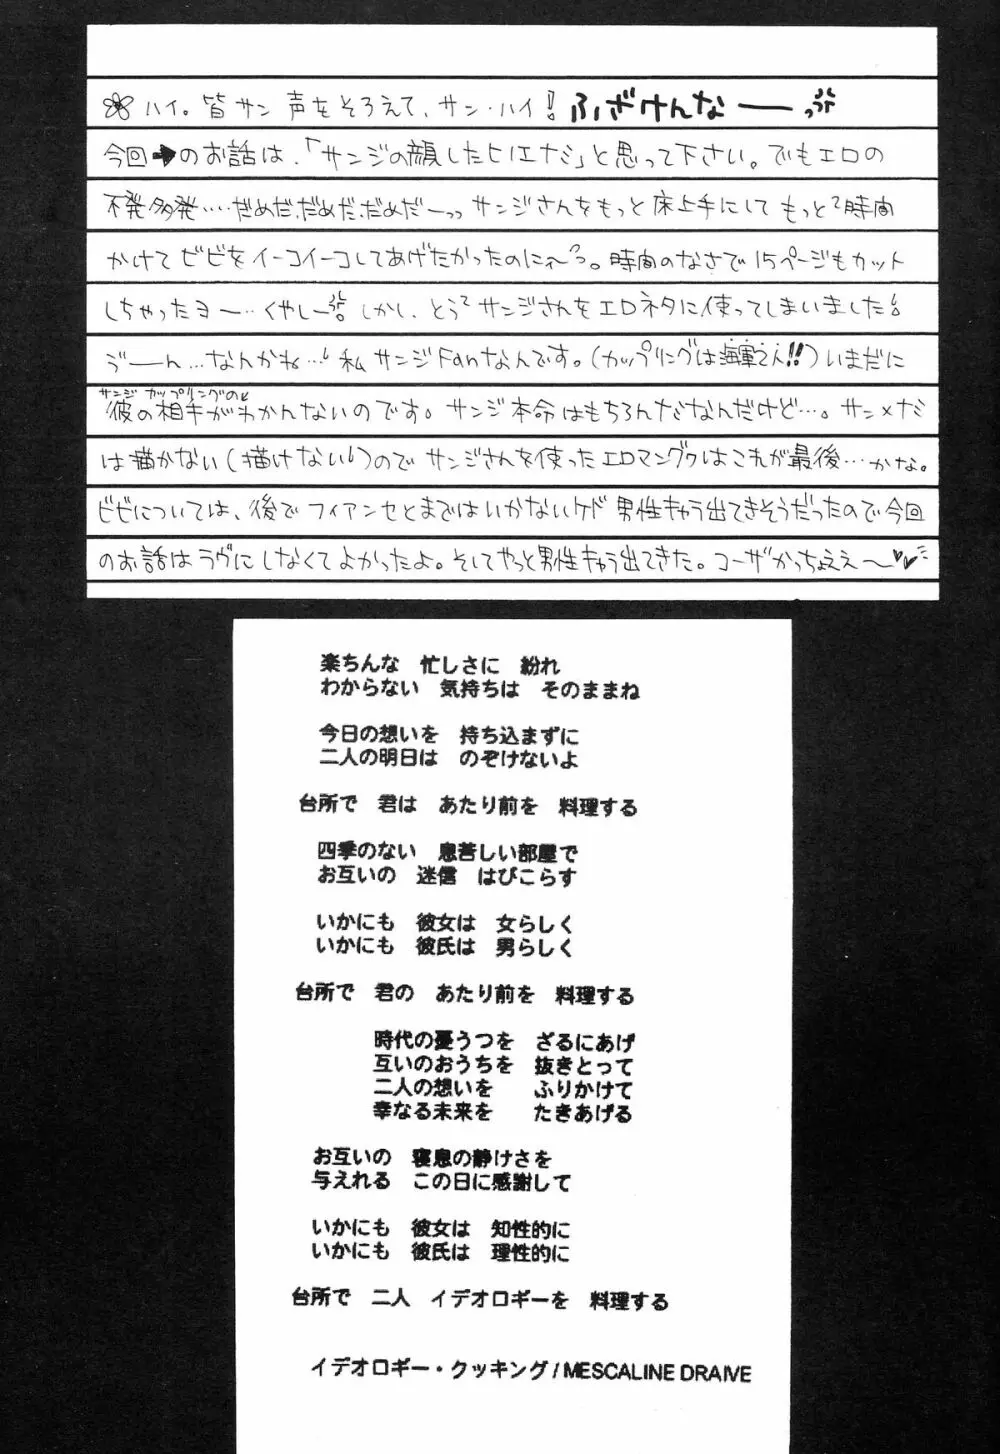 ハイ。皆サン 声をそろえて、サン・ハイ! ふざけんなーっ
今回➡のお話は、「サンジの顔したヒノエナミ」と思って下さい。でもエロの
不発多発‥‥だめだ、だめだ、だめだーっっ サンジさんをもっと床上手にして もっと2時間
かけて ビビをイーコイーコしてあげたかったのにぇ〜っ。時間のなさで15ページもカット
しちゃったヨー‥くやしー。しかし、とうとうサンジさんをエロネタに使ってしまいました!
う゛ーん…なんかね…! 私 サンジFanなんです。(カップリングは海軍さん!!)いまだに
サンジ カップリングの
彼の相手がわかんないのです。サンジ本命はもちろんナミなんだけど…。サン×ナミ
は描かない(描けない!)ので サンジさんを使ったエロマンガはこれが最後…かな。
ビビについては、後でフィアンセとまではいかないケド 男性キャラ出てきそうだったので今回
のお話はラヴにしなくてよかったよ。そしてやっと男性キャラ出てきた。コーザかっちょええ〜
楽ちんな 忙しさに 紛れ
わからない 気持ちは そのままね
今日の想いを 持ち込まずに
二人の明日は のぞけないよ
台所で 君は あたり前を 料理する
四季のない 息苦しい部屋で
お互いの 迷信 はびこらす
いかにも 彼女は 女らしく
いかにも 彼氏は 男らしく
台所で 君の あたり前を 料理する
時代の憂うつを ざるにあげ
互いのおうちを 抜きとって
二人の想いを ふりかけて
幸なる未来を たきあげる
お互いの 寝息の静けさを
与えれる この日に感謝して
いかにも 彼女は 知性的に
いかにも 彼氏は 理性的に
台所で 二人 イデオロギーを 料理する
イデオロギー・クッキング/MESCALINE DRAIVE